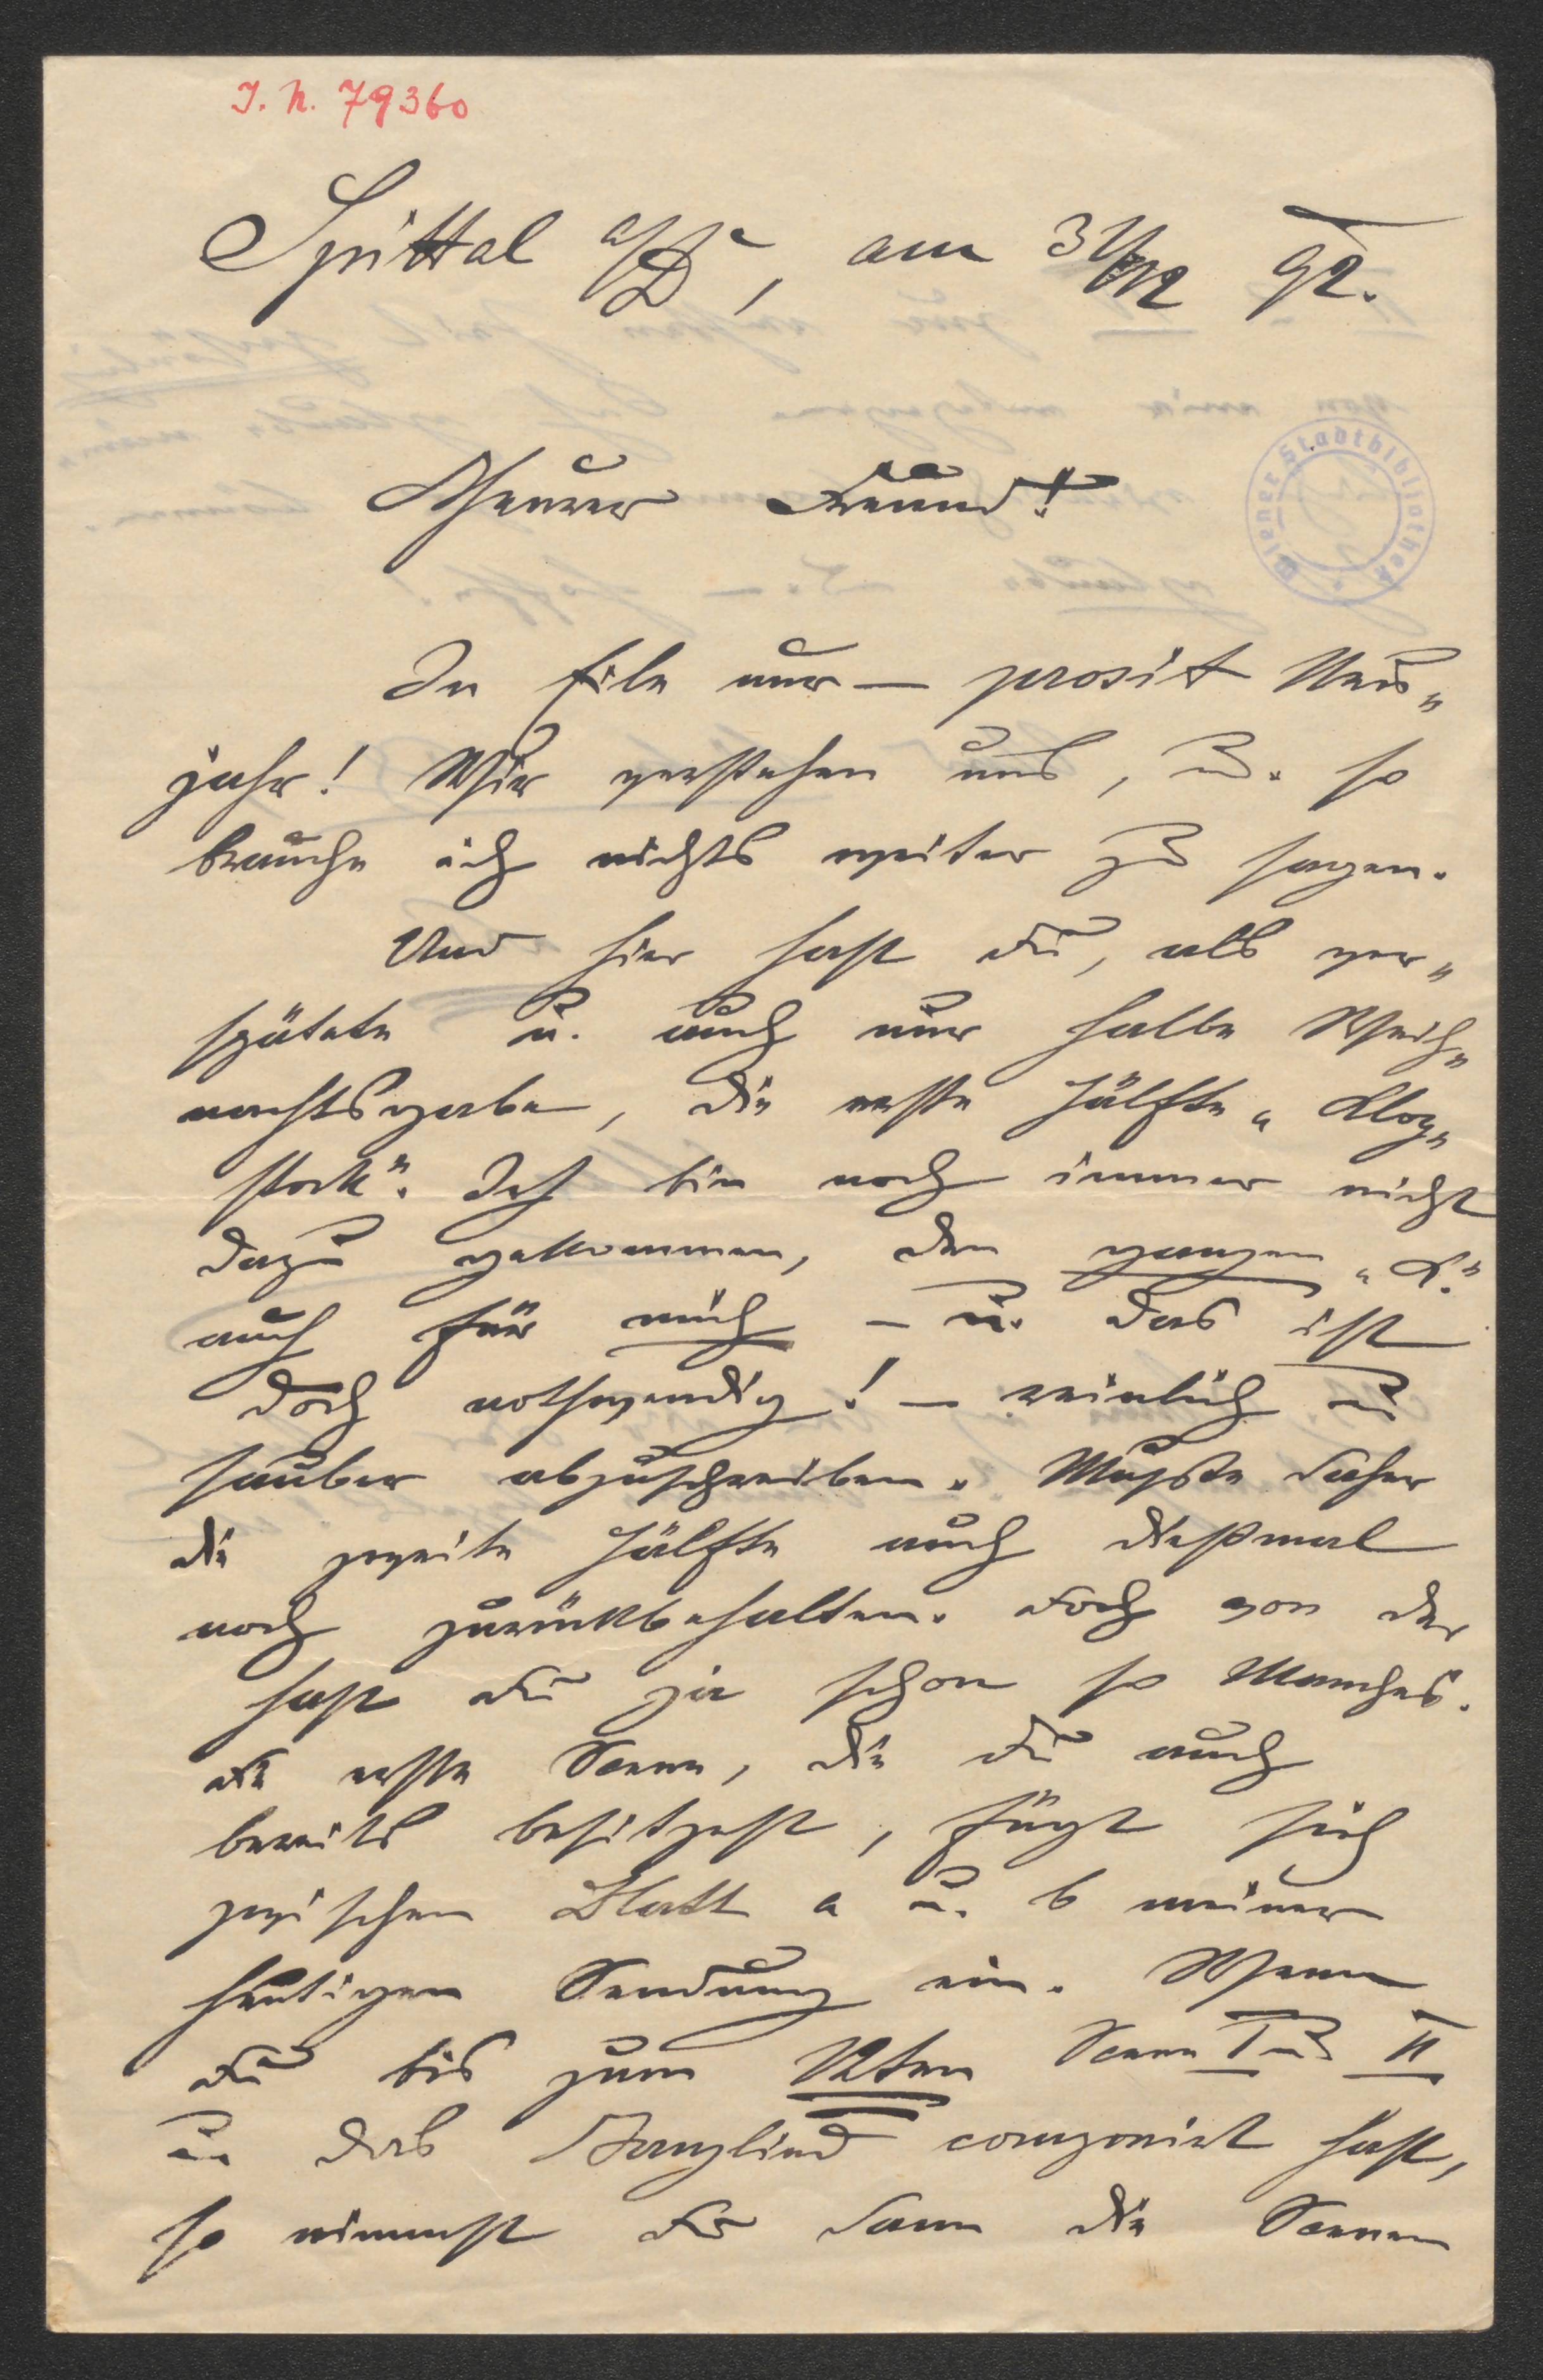 I. N. 79360
Spittal a/D, am 31/12 92.
Wiener Stadtbibliothek
Theurer Freund!
In Eile nur — prosit Neu„
jahr! Wir verstehen uns, u. so
brauche ich nichts weiter zu sagen.
Und hier hast Du, als ver„
spätete u. auch nur halbe Weih„
nachtsgabe, die erste Hälfte „Klop„
stock“. Ich bin noch immer nicht
dazu gekommen, den ganzen „K.“
auch für mich – u. das ist
doch nothwendig! – reinlich u
sauber abzuschreiben. Mußte daher
die zweite Hälfte auch dießmal
noch zurückbehalten. Doch von der
hast Du ja schon so Manches.
Die erste Scene, die Du auch
bereits besitzest, fügt sich
zwischen Blatt a u. b meiner
heutigen Sendung ein. Wenn
Du bis zum 12ten Scene I u II
u. das Tanzlied componirt hast,
so nimmst Du dann die Scenen